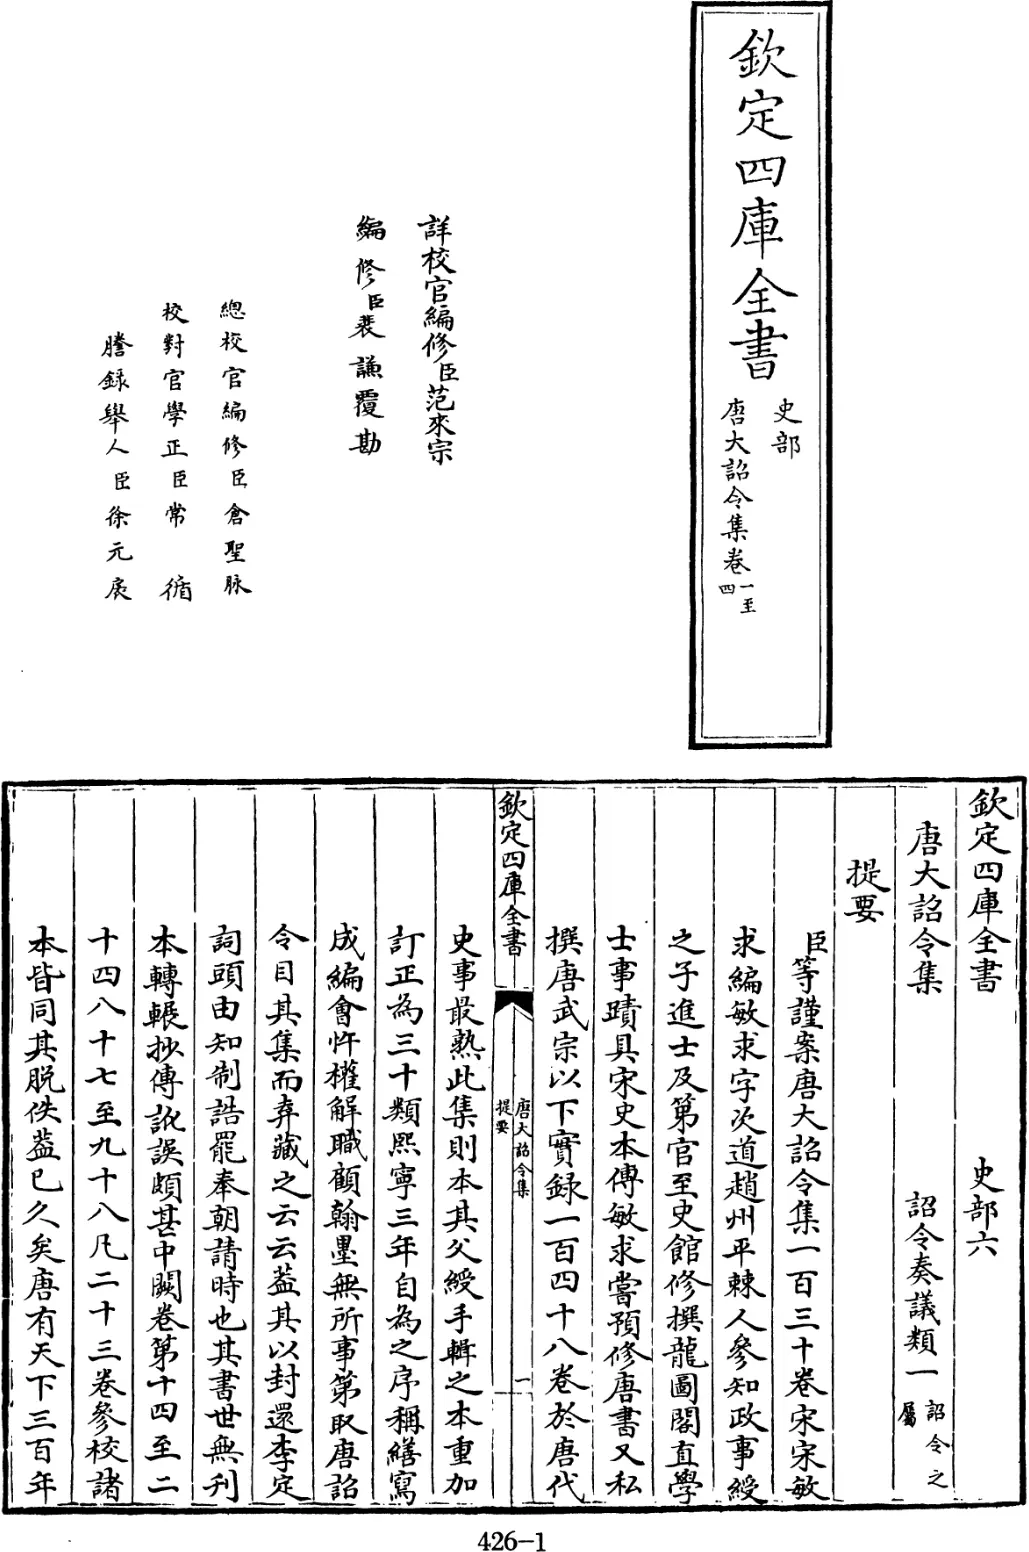 欽定四庫全書
史部
唐大詔令集卷一至四
詳校官編修臣范來宗
編修臣裴謙覆勘
總校官編修臣倉聖脉
校對官學正臣常循
謄錄舉人臣徐元戾
欽定四庫全書 史部六
唐大詔令集 詔令奏議類一 詔令之屬
提要
臣等謹案唐大詔令集一百三十卷宋宋敏
求編敏求字次道趙州平棘人參知政事綬
之子進士及第官至史館修撰龍圖閣直學
士事蹟具宋史本傳敏求嘗預修唐書又私
撰唐武宗以下實録一百四十八卷於唐代
欽定四庫全書
唐大詔令集
提要
一
史事最熟此集則本其父綬手輯之本重加
訂正為三十類熙寧三年自為之序稱繕寫
成編會忤權解職顧翰墨無所事第取唐詔
令目其集而弆藏之云云葢其以封還李定
詞頭由知制誥罷奉朝請時也其書世無刊
本轉輾抄傳訛誤頗甚中闕卷第十四至二
十四八十七至九十八凡二十三卷參校諸
本皆同其脱佚葢已久矣唐有天下三百年
426-1